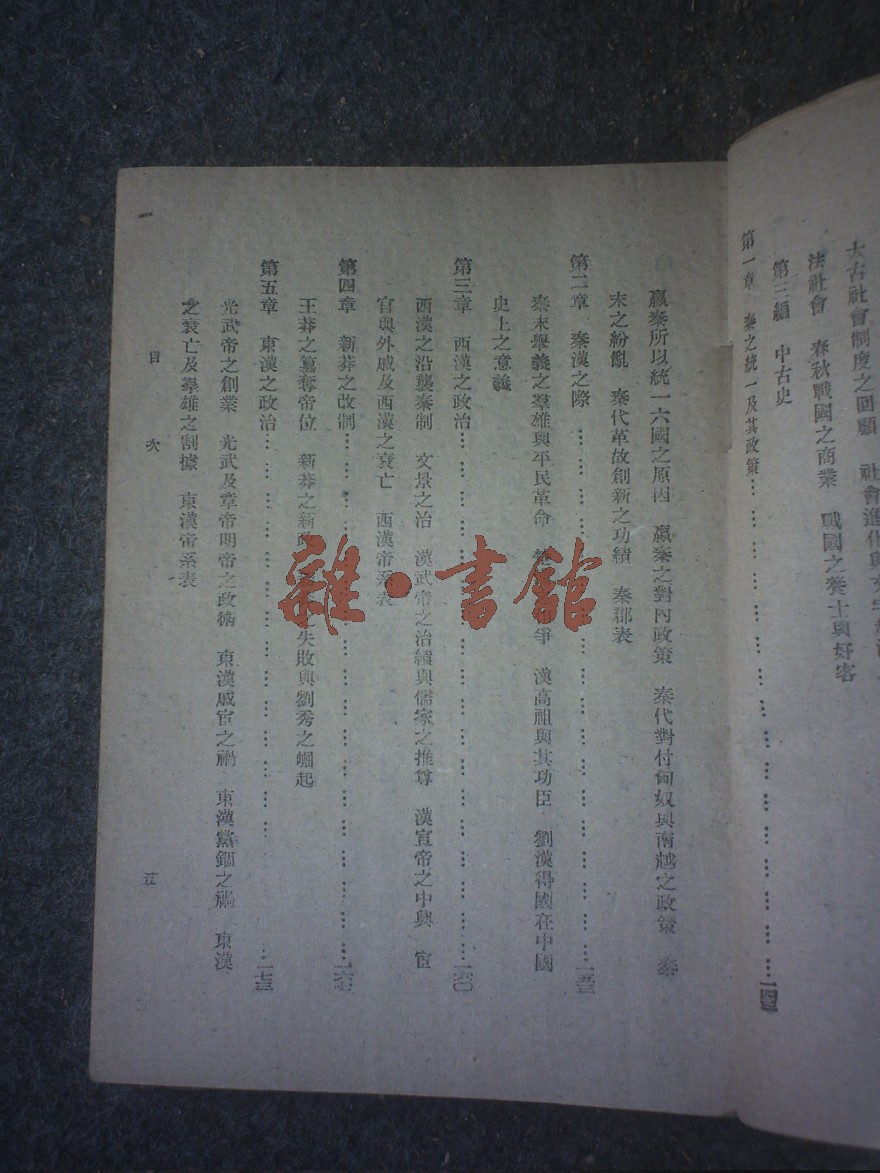 太古社會制度之回顧　社會進化與
法社會　春秋戰國之商業　戰國之養士與好客
第三編　中古史
第一章　秦之統一及其政策……一四三
嬴秦所以統一六國之原因　嬴秦之對內政策　秦代對付匈奴與南越之政策　秦
末之紛亂　秦代革故創新之功績　秦郡表
第二章　秦漢之際……一五三
秦末舉義之羣雄與平民革命　爭　漢高祖與其功臣　劉漢得國在中國
史上之意義
第三章　西漢之政治……一六〇
西漢之沿襲秦制　文景之治　漢武帝之治績與儒家之推尊　漢宣帝之中興　宦
官與外戚及西漢之衰亡　西漢帝系表
第四章　新莽之改制……一六七
王莽之篡奪帝位　新莽之新政　之失敗與劉秀之崛起
第五章　東漢之政治……一七三
光武帝之創業　光武及章帝明帝之政術　東漢戚宦之禍　東漢黨錮之禍　東漢
之衰亡及羣雄之割據　東漢帝系表
目　次
五
雜·書館